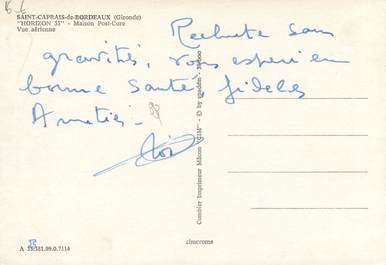 SAINT-CAPRAIS-de-BORDEAUX (Gironde)
"HORIZON 33" - Maison Post-Cure
Vue aérienne
Rechute sans
gravité, vous espère en
bonne santé, fidèles
Amitiés -
Combier Imprimeur Mâcon "CIM" - © by
cimcrome